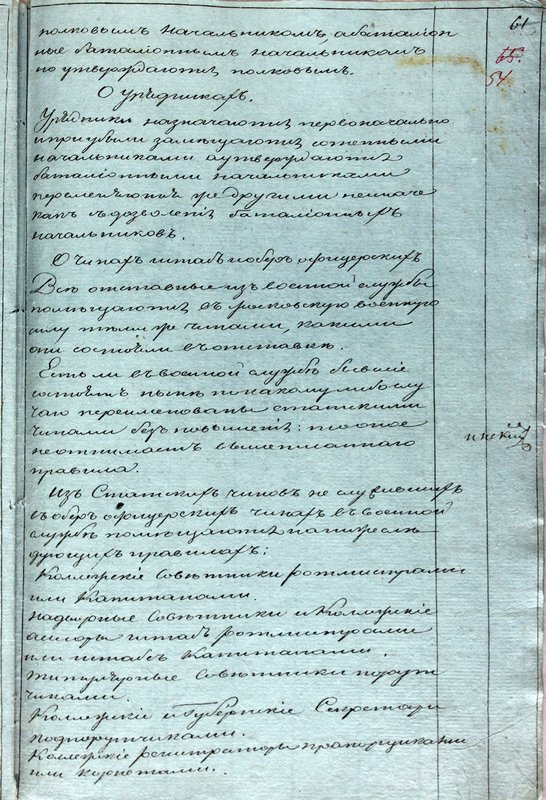 61
65.
54
полковымъ начальникомъ, а баталіон
ные баталіоннымъ начальникомъ
по утверждаются полковымъ.
О урядникахъ.
Урядники назначаются первоначально
и при убыли замѣщаются сотенными
начальниками а утверждаются
баталіонными начальниками
перемѣняются же другими не иначе
какъ съ дозволенія баталіонныхъ
начальниковъ.
О чинахъ штабъ и оберъ офицерскихъ
Всѣ отставные изъ военной службы
помѣщаются въ московскую военную
силу тѣми же чинами, какими
они состояли въ отставкѣ.
Есть ли въ военной службѣ бывшіе
состоятъ нынѣ по какому либо слу
чаю переименованы статскими
чинами безъ повышенія: то оное
не отнимаетъ вышеписаннаго
правила.
Изъ Статскихъ чиновъ не служившихъ
въ оберъ офицерскихъ чинахъ въ военной
службѣ помѣщаются по нижеслѣ
дующихъ правилахъ:
Коллежскіе совѣтники ротмистрами
или Капитанами.
Надворные Совѣтники и Коллежскіе
асесоры штабъ ротмистрами
или штабсъ Капитанами.
Титулярные Совѣтники поручи
чиками.
Коллежскіе и Губернскіе Секретари
подпоручиками.
Коллежскіе регистраторы прапорщиками
или корнетами.